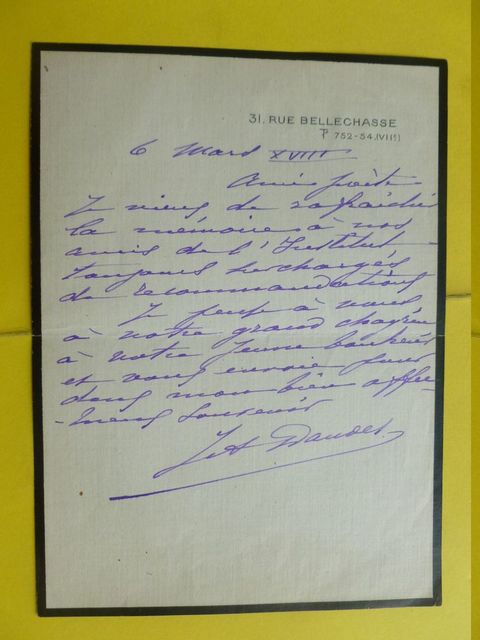 31, RUE BELLECHASSE
752-54 (VIIe)
6 Mars XVIII
Ami poète
Je viens de rafraîchir
la mémoire à nos
amis de l'Institut
toujours surchargés
de recommandations
Je pense à vous
à votre grand chagrin
à votre jeune bonheur
et vous envoie pour
deux mon bien affec-
-tueux souvenir
Daudet